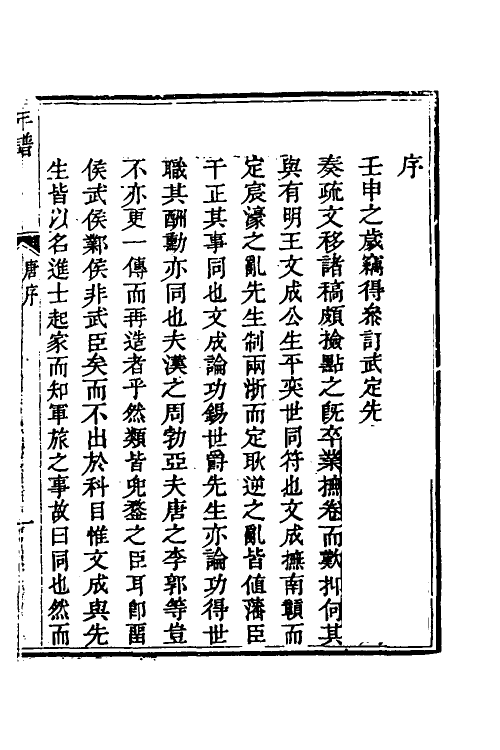 序
壬申之歲竊得叅訂武定先
奏疏文移諸稿頗撿點之旣卒業撫卷而歎抑何其
與有明王文成公生平奕世同符也文成撫南贑而
定宸濠之亂先生制兩浙而定耿逆之亂皆值藩臣
干正其事同也文成論功錫世爵先生亦論功得世
職其酬勳亦同也夫漢之周勃亞夫唐之李郭等豈
不亦更一傳而再造者乎然類皆兜鍪之臣耳卽畱
侯武侯鄴侯非武臣矣而不出於科目惟文成與先
生皆以名進士起家而知軍旅之事故曰同也然而
年譜
唐序
一